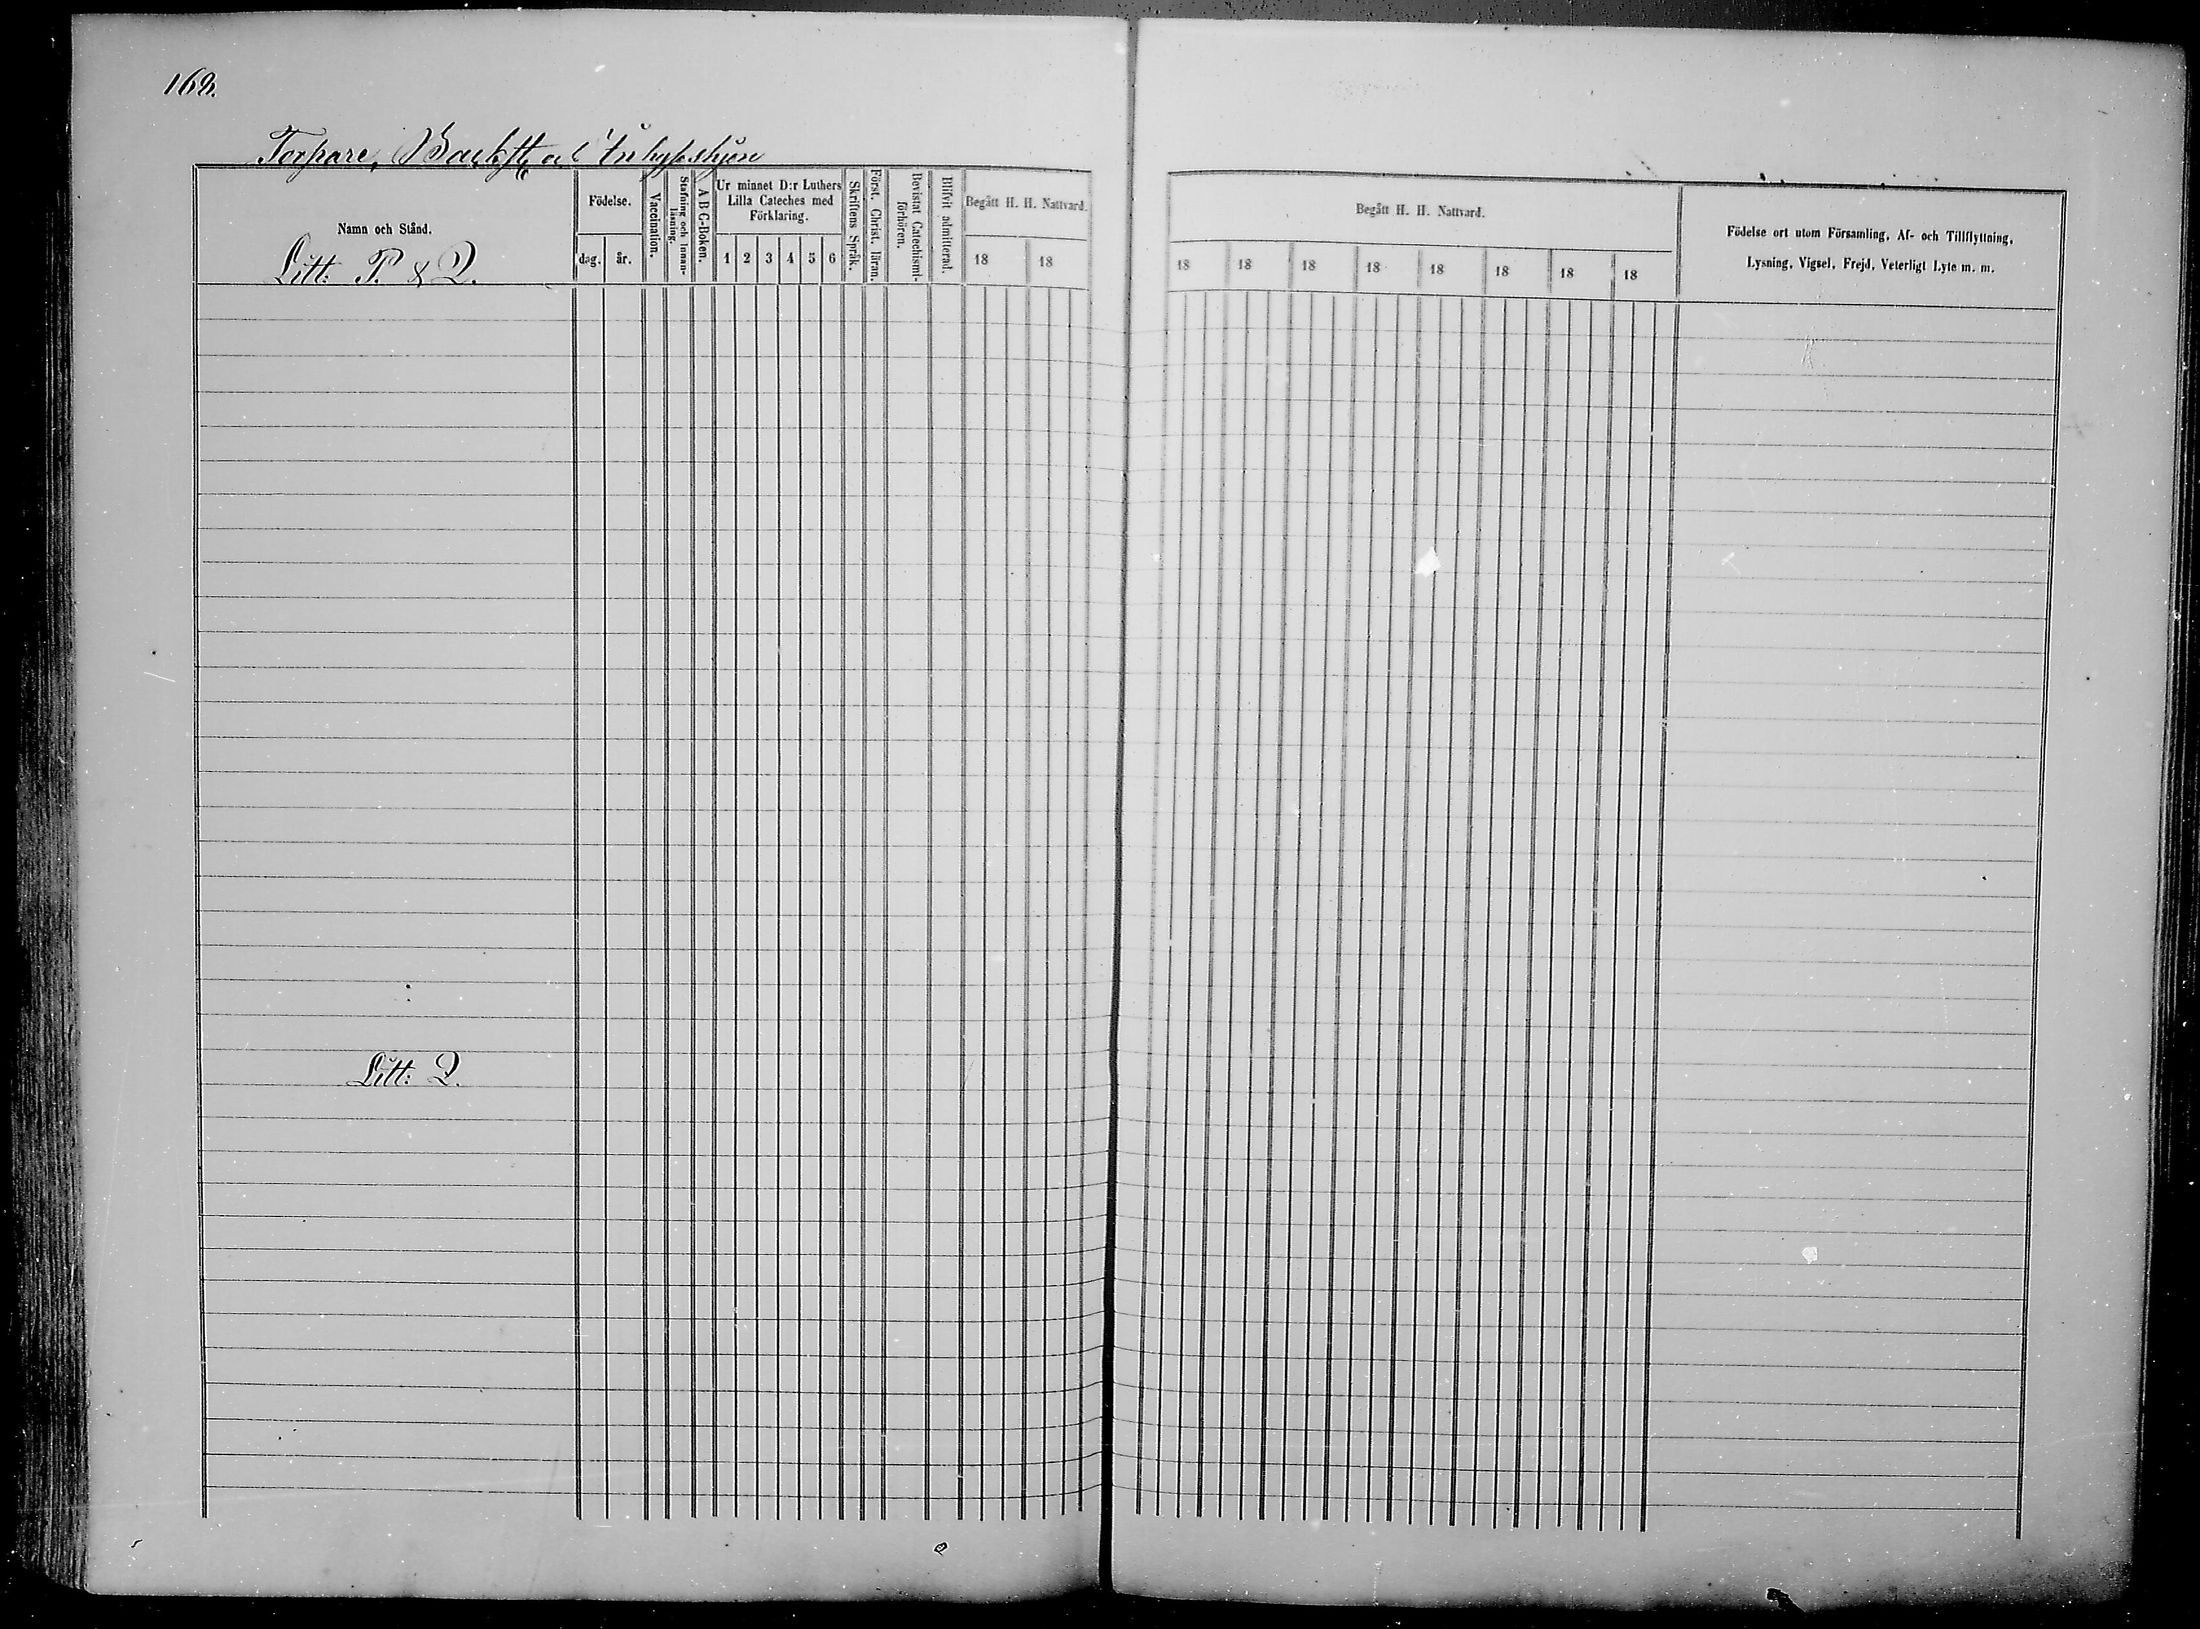 168.
Torpare, Backst. och Inhyseshjon
Namn och Stånd.
Litt: P. & Q.
Födelse.
dag. år.
Vaccination.
Stafning och Innan-
läsning.
A B C-Boken.
Ur minnet D:r Luthers
Lilla Cateches med
Förklaring.
1 2 3 4 5 6
Skriftens Språk.
Först. Christ. läran.
Bevistat Catechismi-
förhören.
Blifvit admitterad.
Begått H. H. Nattvard.
18 18
Begått H. H. Nattvard.
18 18 18 18 18 18 18 18
Födelse ort utom Församling, Af- och Tillflyttning,
Lysning, Vigsel, Frejd, Veterligt Lyte m. m.
Litt: Q.